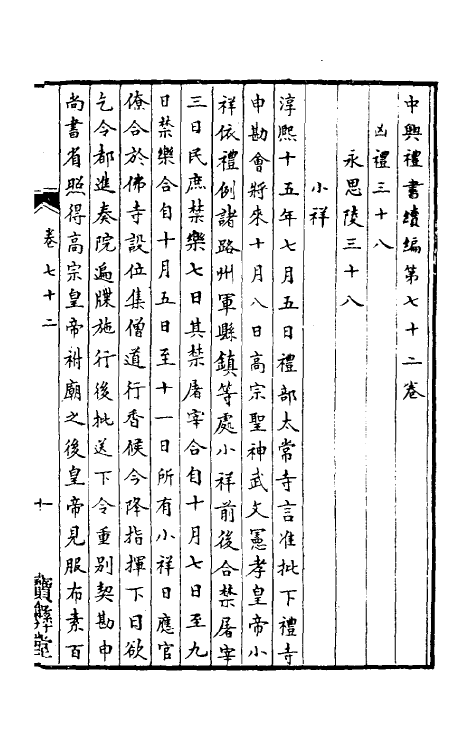 中興禮書續編第七十二卷
凶禮三十八
永思陵三十八
小祥
淳熙十五年七月五日禮部太常寺言准批下禮寺
申勘會將來十月八日高宗聖神武文憲孝皇帝小
祥依禮例諸路州軍縣鎮等處小祥前後合禁屠宰
三日民庶禁樂七日其禁屠宰合自十月七日至九
日禁樂合自十月五日至十一日所有小祥日應官
僚合於佛寺設位集僧道行香候今降指揮下日欲
乞令都進奏院遍牒施行後批送下令重別契勘申
尚書省照得高宗皇帝祔廟之後皇帝見服布素百
卷七十二
十
寶彝堂